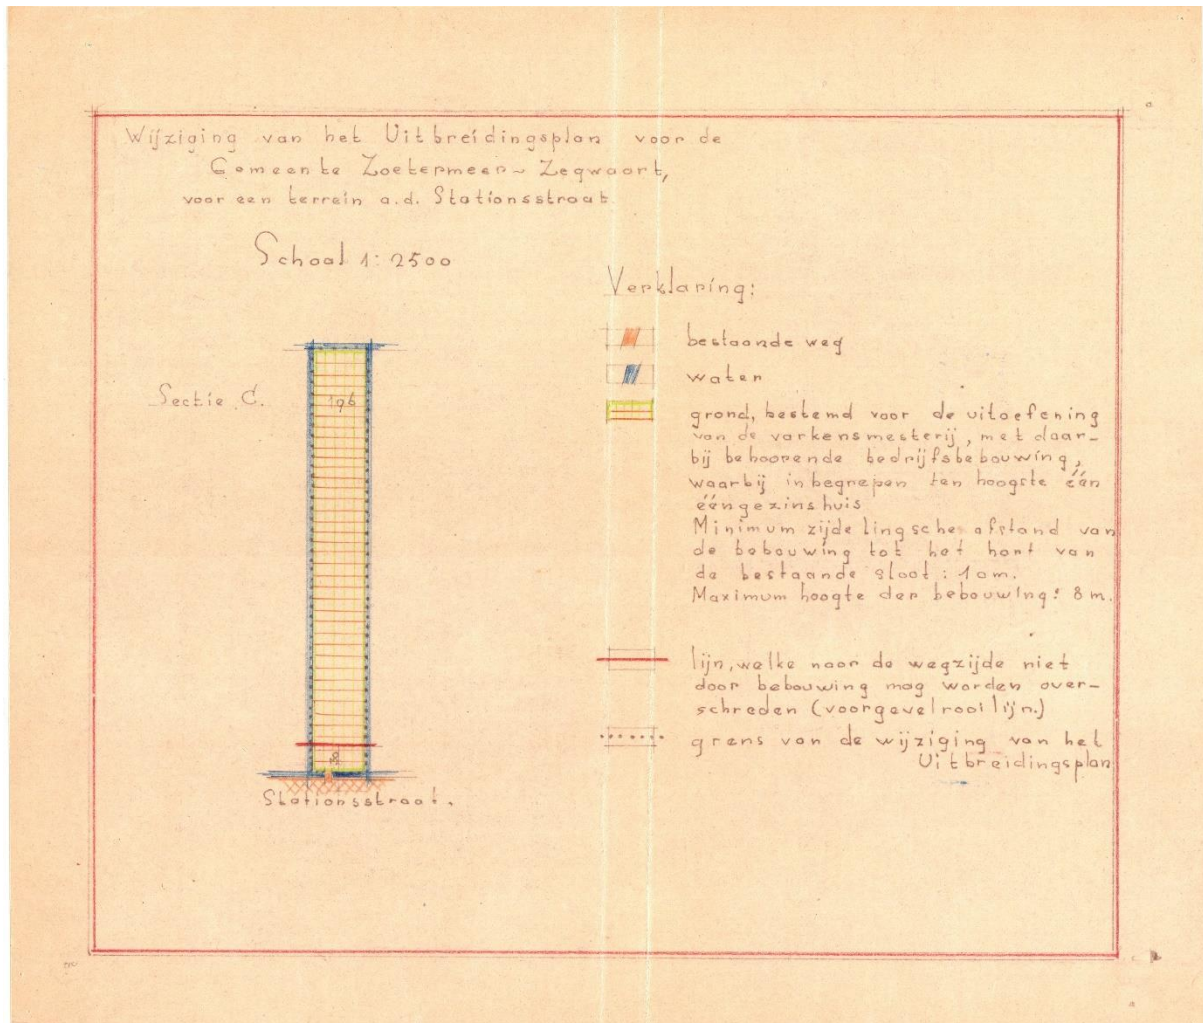 Wijziging van het Uitbreidingsplan voor de
Gemeente Zoetermeer~Zegwaart,
voor een terrein a.d. Stationsstraat.
Schaal 1:2500
Verklaring:
bestaande weg
water
Sectie C.
196
grond, bestemd voor de uitoefening
van de varkensmesterij, met daar-
bij behoorende bedrijfsbebouwing,
waarbij inbegrepen ten hoogste één
ééngezinshuis
Minimum zijdelingsche afstand van
de bebouwing tot het hart van
de bestaande sloot: 10m.
Maximum hoogte der bebouwing: 8 m.
lijn, welke naar de wegzijde niet
door bebouwing mag worden over-
schreden (voorgevelrooilijn.)
grens van de wijziging van het
Uitbreidingsplan
30
Stationsstraat.